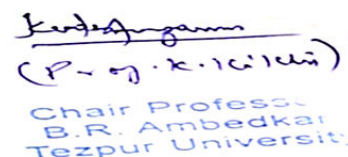 (Prof. K. Kikhi)
Chair Profess
B.R. Ambedkar
Tezpur Universit